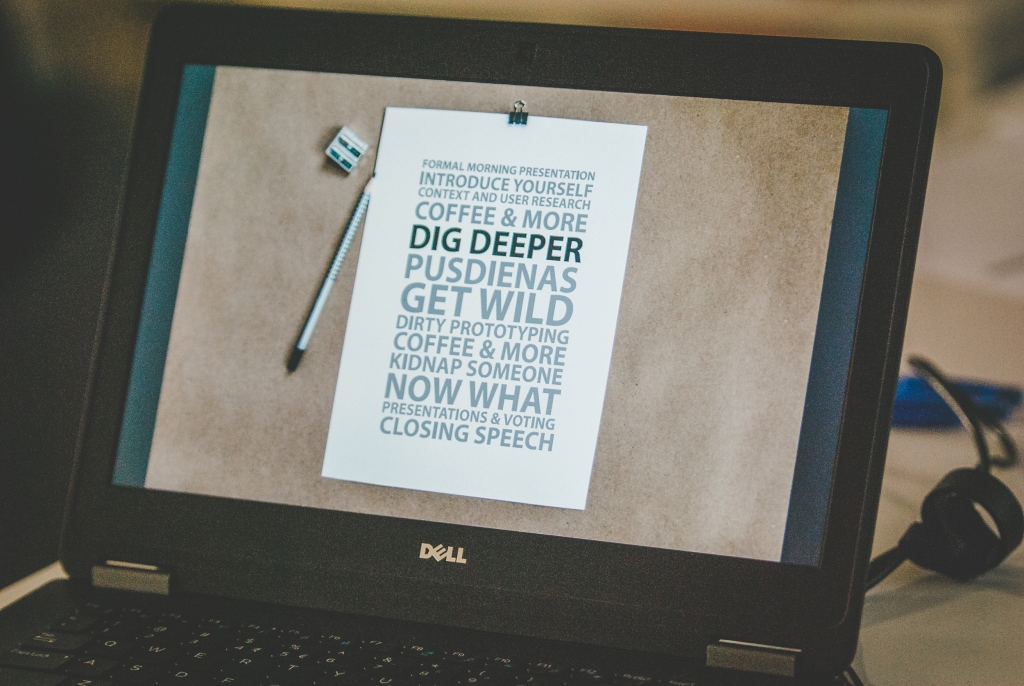 FORMAL MORNING PRESENTATION
INTRODUCE YOURSELF
CONTEXT AND USER RESEARCH
COFFEE & MORE
DIG DEEPER
PUSDIENAS
GET WILD
DIRTY PROTOTYPING
COFFEE & MORE
KIDNAP SOMEONE
NOW WHAT
PRESENTATIONS & VOTING
CLOSING SPEECH
DELL
Q W E R T Y U
A S D
Z